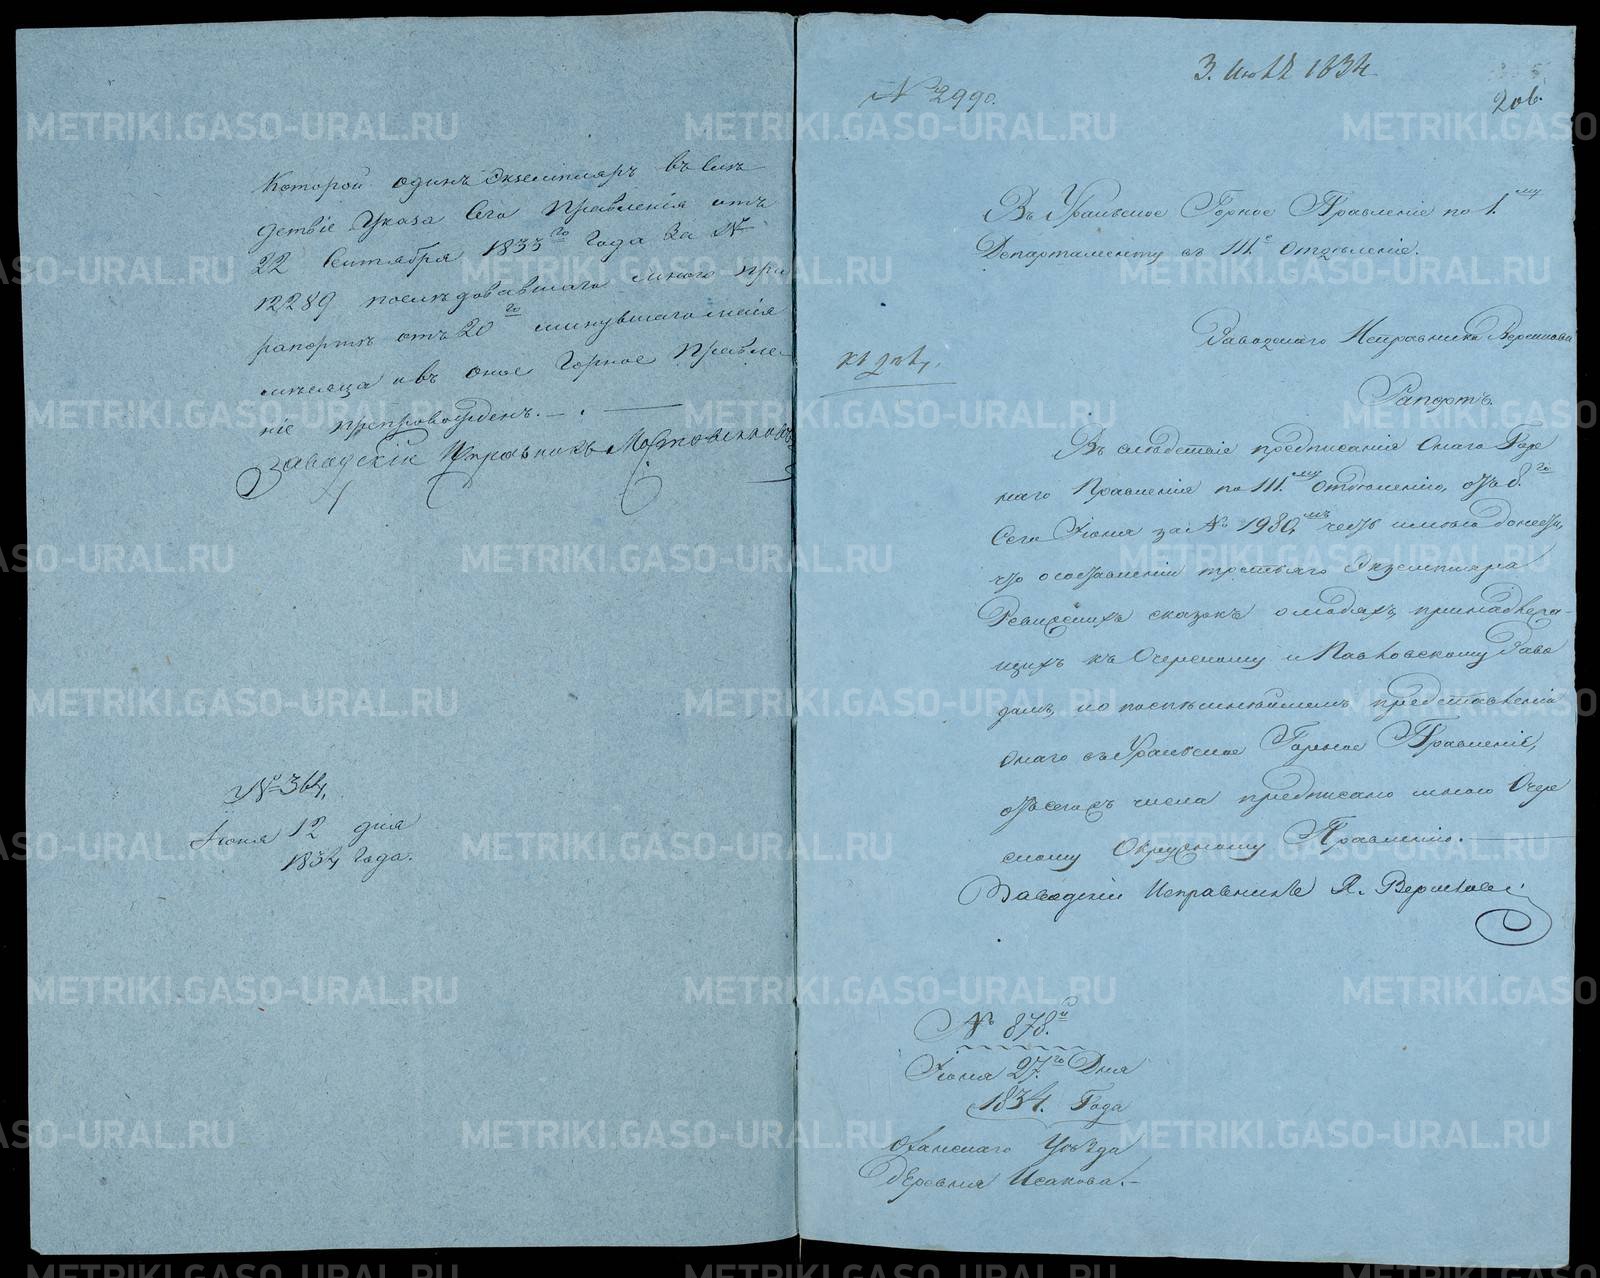 которой одинъ Экземпляръ въ слѣ
дствіе Указа Сего Правленія отъ
22 Сентября 1833го Года За №
12289 послѣдовавшаго мною при
рапортѣ отъ 20го минувшаго маія
мѣсяца и въ оное Горное Правле-
ніе препровожденъ.
Заводскій Исправникъ
№ 364,
Іюня 12 дня
1834 Года.
3. Июля 1834
№ 2990.
206.
Въ Уральское Горное Правленіе по 1.му
Департаменту въ III.е Отдѣленіе.
Заводскаго Исправника Вершинова
къ дѣлу.
Рапортъ.
Въ слѣдствіе предписанія Онаго Гор
наго Правленія по III.му Отдѣленію, отъ 8.го
Сего Іюня за № 1980,мъ честь имѣю донести,
что о составленіи третьяго Экземпляра
Ревизскихъ сказокъ о людяхъ, принадлежа-
щихъ къ Очерскому и Павловскому Заво
дамъ, и о поспѣшнѣйшемъ представленіи
онаго въ Уральское Горное Правленіе,
отъ сего числа предписано мною Очер
скому Окружному Правленію.
Заводскій Исправникъ Я.
№ 878.й
Іюня 27.го Дня
1834. Года
Оханскаго Уѣзда
деревня Исакова.
METRIKI.GASO-URAL.RU